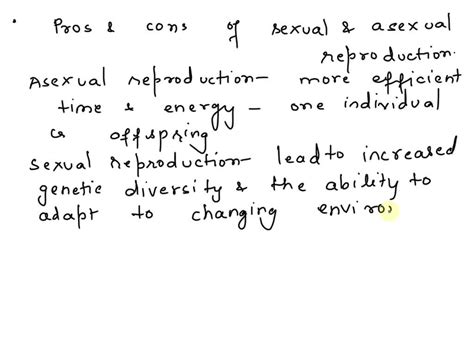 • Pros & cons of sexual & asexual
reproduction.
Asexual reproduction- more efficient
time & energy - one individual
offspring
Sexual reproduction- lead to increased
genetic diversity & the ability to
adapt to changing enviro